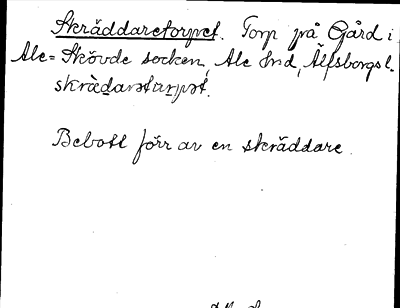 Skräddaretorpet. Torp på Gård i
Ale-Skövde socken, Ale hd, Älfsborgs l.
skrädarətarpət.
Bebott förr av en skräddare.